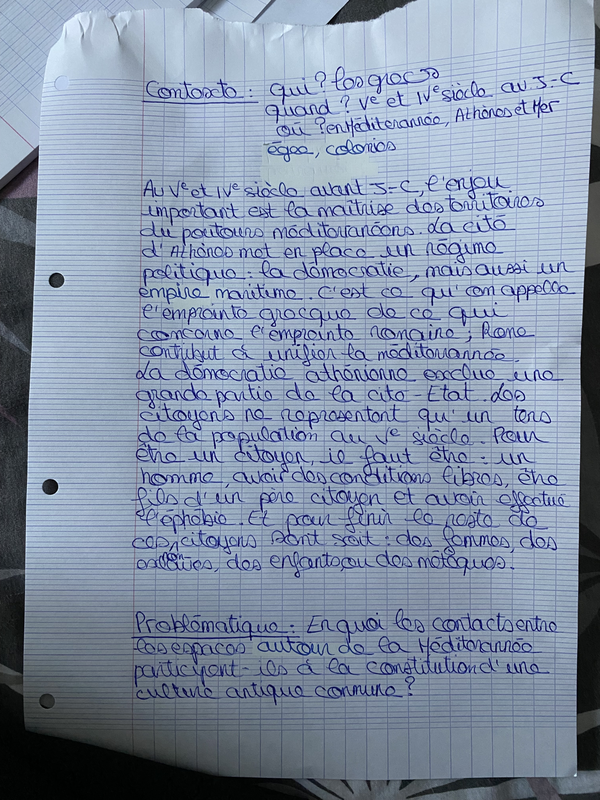 Contexte : qui? les grecs
quand? Ve et IVe siècle av J-C
où ? en Méditerannée, Athènes et Mer
égée, colonies
Au Ve et IVe siècle avant J-C, l'enjeu
important est la maîtrise des territoires
du pourtours méditerranéens. La cité
d'Athènes met en place un régime
politique : la démocratie, mais aussi un
empire maritime. C'est ce qu'on appelle
l'empreinte grecque de ce qui
concerne l'empreinte romaine ; Rome
contribut à unifier la méditerrannée.
La démocratie athénienne exclue une
grande partie de la cité-Etat. Les
citoyens ne représentent qu'un tiers
de la population au Ve siècle. Pour
être un citoyen, il faut être : un
homme, avoir des conditions libres, être
fils d'un père citoyen et avoir effectué
l'éphébie. Et pour finir le reste de
ces non citoyens sont soit : des femmes, des
esclaves, des enfants, ou des métèques.
Problématique : En quoi les contacts entre
les espaces autour de la Méditerannée
participent-ils à la constitution d'une
culture antique commune ?